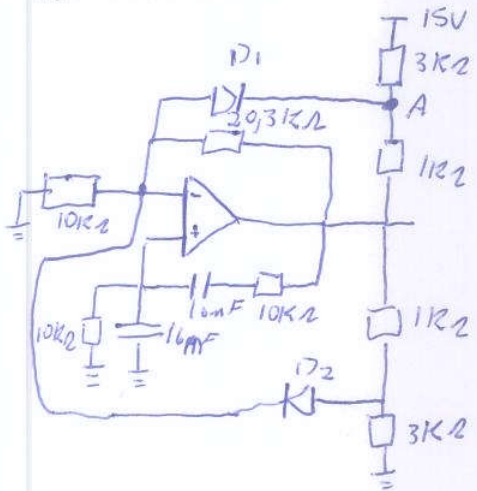 15V
3KΩ
D1
A
20,3KΩ
1KΩ
-
10KΩ
+
16nF
10KΩ
10KΩ
1KΩ
D2
3KΩ